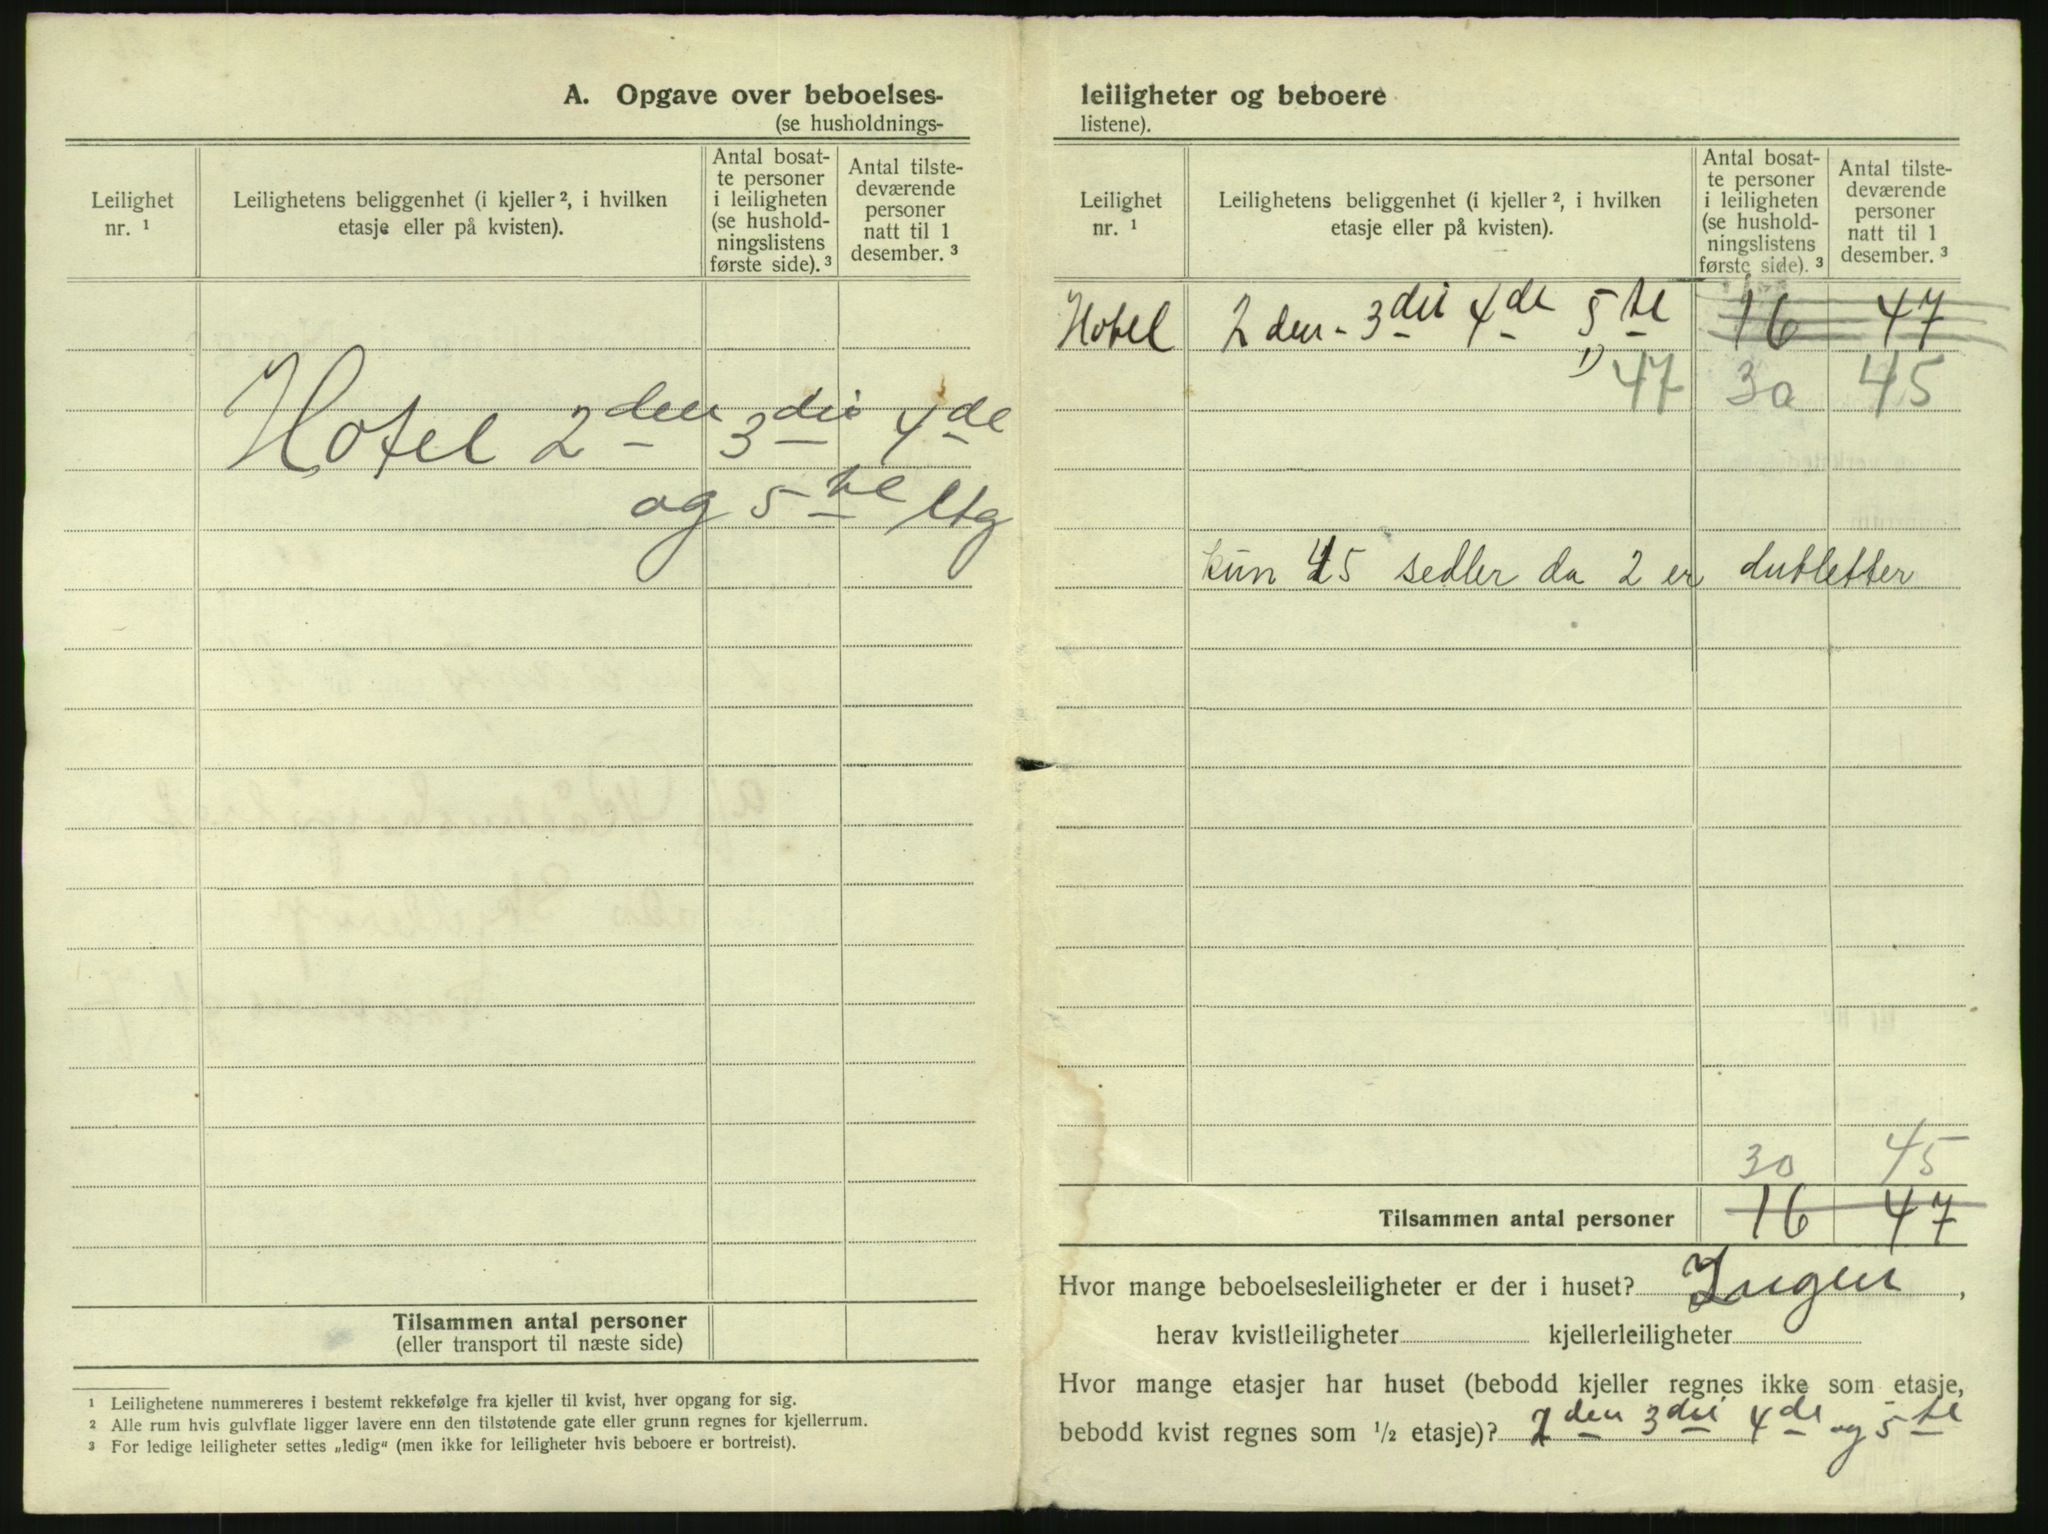 A. Opgave over beboelses-
(se husholdnings-
Leilighet
nr. ¹
Leilighetens beliggenhet (i kjeller ², i hvilken
etasje eller på kvisten).
Antal bosat-
te personer
i leiligheten
(se hushold-
ningslistens
første side). ³
Antal tilste-
deværende
personer
natt til 1
desember. ³
Hotel 2den 3die 4de
og 5te Etg
Tilsammen antal personer
(eller transport til næste side)
¹ Leilighetene nummereres i bestemt rekkefølge fra kjeller til kvist, hver opgang for sig.
² Alle rum hvis gulvflate ligger lavere enn den tilstøtende gate eller grunn regnes for kjellerrum.
³ For ledige leiligheter settes „ledig“ (men ikke for leiligheter hvis beboere er bortreist).
leiligheter og beboere
listene).
Leilighet
nr. ¹
Leilighetens beliggenhet (i kjeller ², i hvilken
etasje eller på kvisten).
Antal bosat-
te personer
i leiligheten
(se hushold-
ningslistens
første side). ³
Antal tilste-
deværende
personer
natt til 1
desember. ³
Hotel 2den - 3die 4de 5te 16 47
1) 47 30 45
kun 45 sedler da 2 er dubletter
30 45
Tilsammen antal personer 16 47
Hvor mange beboelsesleiligheter er der i huset? Ingen,
herav kvistleiligheter kjellerleiligheter
Hvor mange etasjer har huset (bebodd kjeller regnes ikke som etasje,
bebodd kvist regnes som ½ etasje)? 2den 3die 4de og 5te